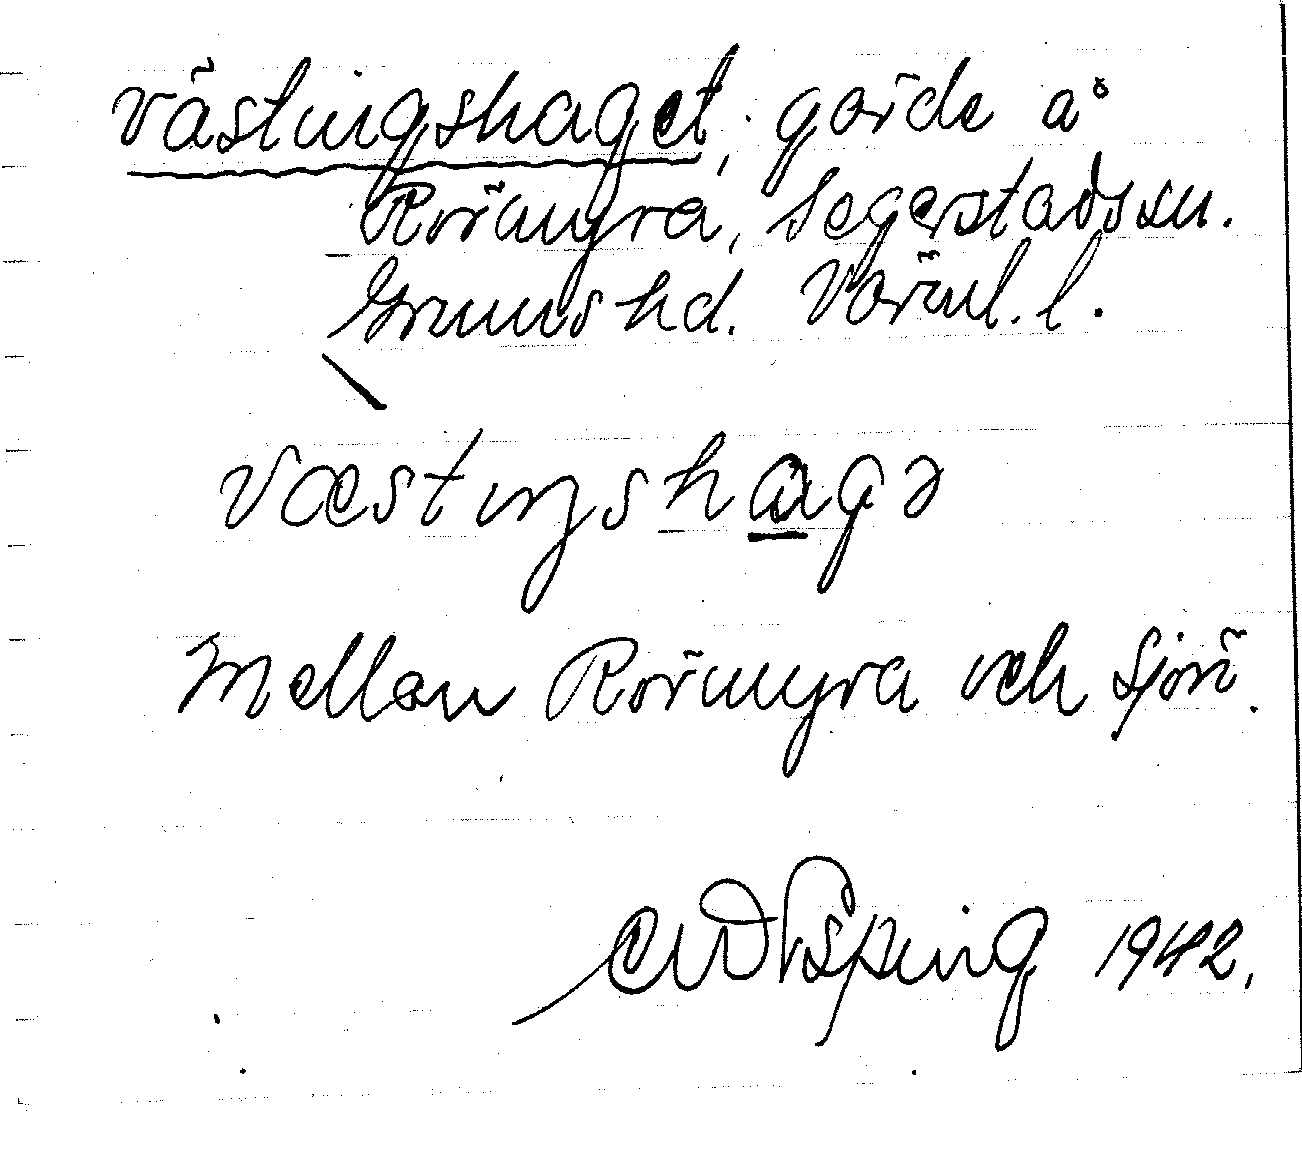 västingshaget, gärde å
Rörmyra, Segerstads sn.
Grums hd. Värml. l.
væstiŋshagə
Mellan Rörmyra och sjön.
1942.